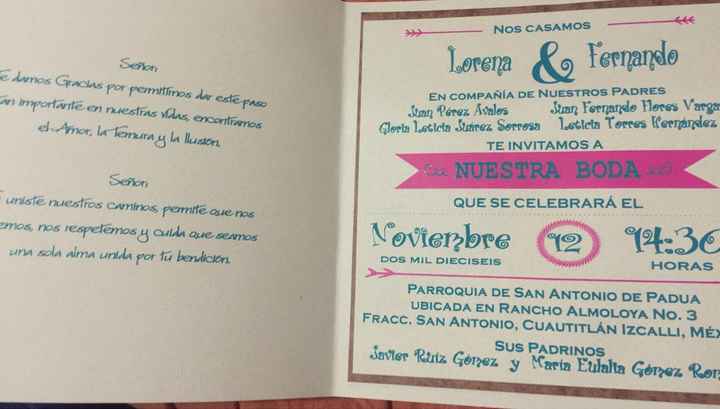 Señor
Te damos Gracias por permitirnos dar este paso
tan importante en nuestras vidas, encontramos
el Amor, la Ternura y la Ilusión.
Señor
uniste nuestros caminos, permite que nos
emos, nos respetemos y cuida que seamos
una sola alma unida por tú bendición.
Nos casamos
Lorena & Fernando
En compañía de Nuestros Padres
Juan Pérez Avalos Juan Fernando Flores Vargas
Gloria Leticia Juárez Sorrosa Leticia Torres Hernández
te invitamos a
NUESTRA BODA
que se celebrará el
Noviembre 12 14:30
dos mil dieciseis horas
Parroquia de San Antonio de Padua
ubicada en Rancho Almoloya No. 3
Fracc. San Antonio, Cuautitlán Izcalli, Méx
Sus Padrinos
Javier Ruiz Gómez y María Eulalia Gómez Rom